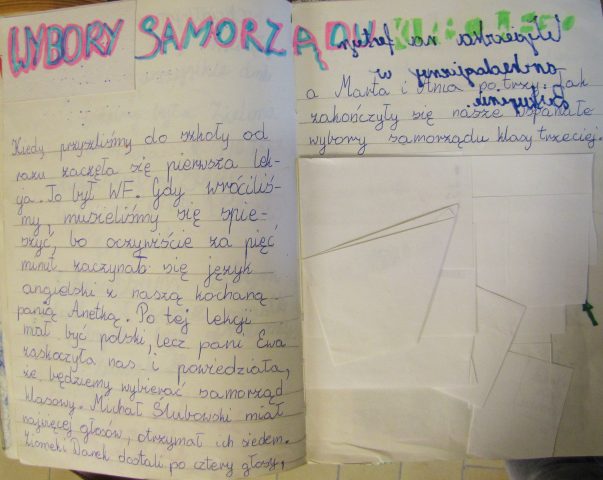 WYBORY SAMORZĄDU
Kiedy przyszliśmy do szkoły od
razu zaczęła się pierwsza lek-
cja. To był WF. Gdy wróciliś-
my musieliśmy się spie-
szyć, bo oczywiście za pięć
minut zaczynał się język
angielski z naszą kochaną
panią Anetką. Po tej lekcji
miał być polski, lecz pani Ewa
zaskoczyła nas i powiedziała,
że będziemy wybierać samorząd
klasowy. Michał Ślubowski miał
najwięcej głosów, otrzymał ich siedem.
Ziomek i Darek dostali po cztery głosy,
Wycieczka na festyn
archeologiczny w
Biskupinie
a Marta i Ania po trzy. Tak
zakończyły się nasze wspaniałe
wybory samorządu klasy trzeciej.